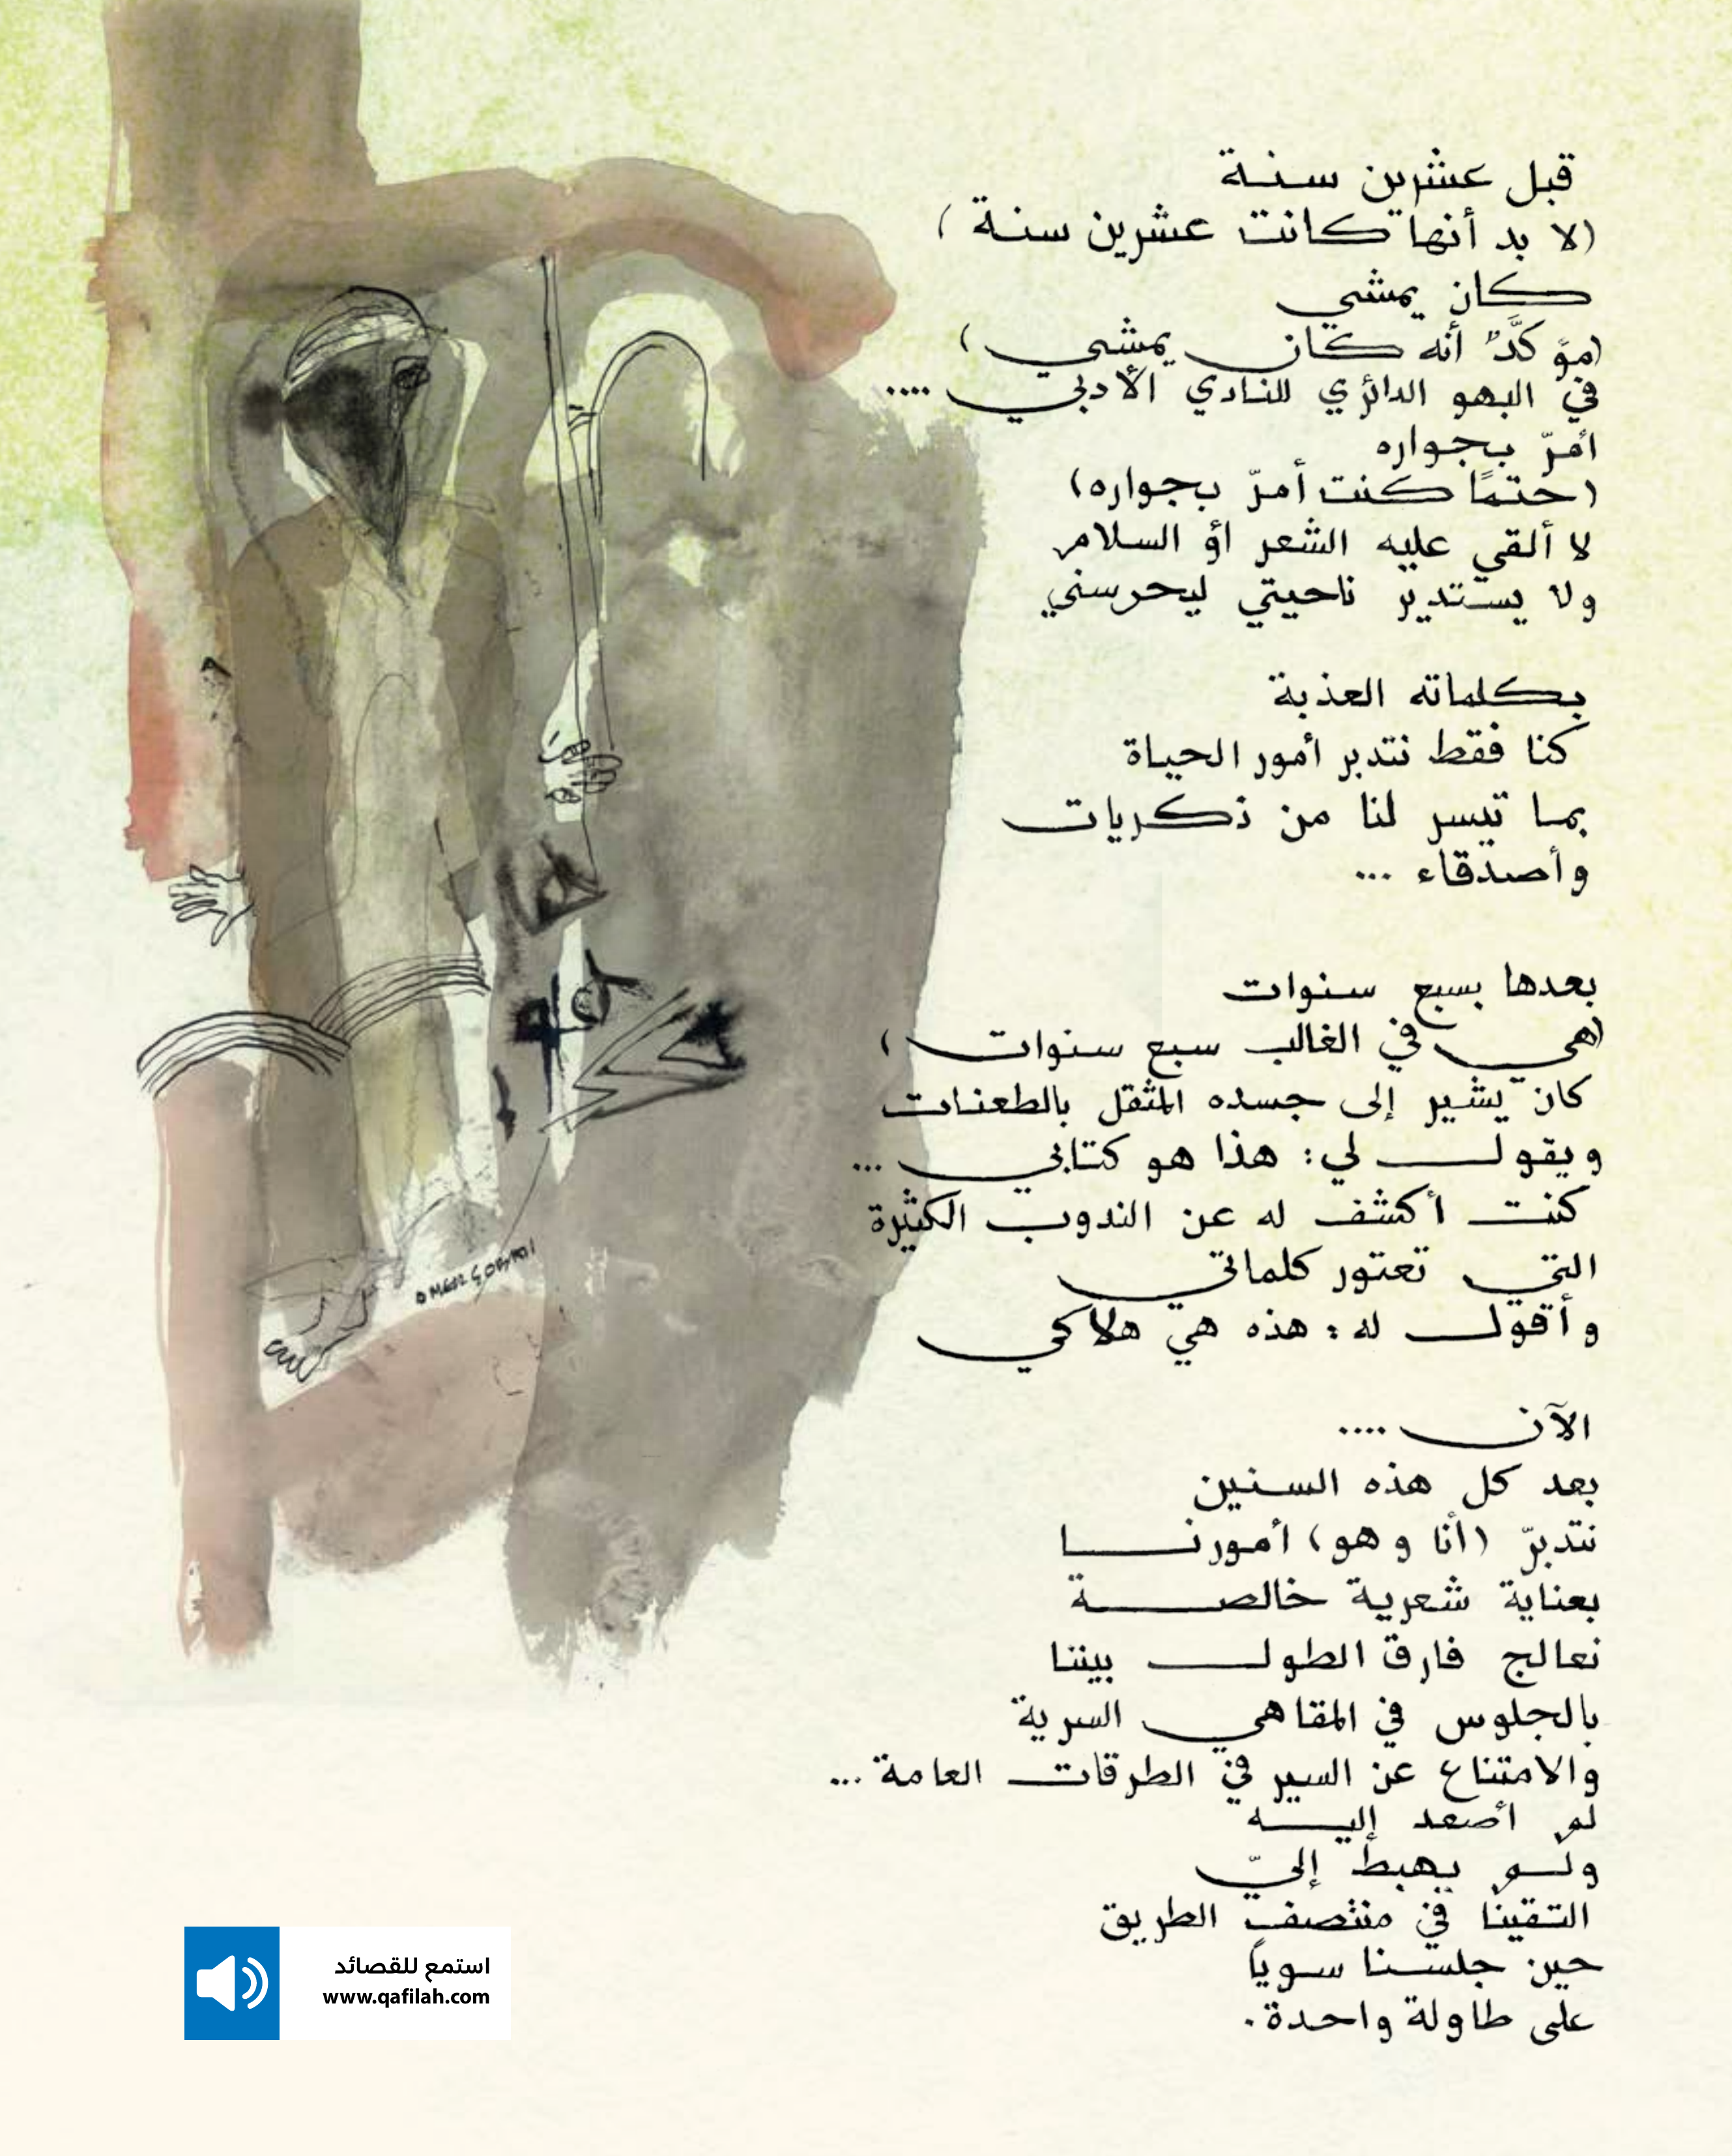 قبل عشرين سنة
(لا بد أنها كانت عشرين سنة)
كان يمشي
(مؤكَّدٌ أنه كان يمشي)
في البهو الدائري للنادي الأدبي ....
أمرّ بجواره
(حتمًا كنت أمرّ بجواره)
لا ألقي عليه الشعر أو السلام
ولا يستدير ناحيتي ليحرسني
بكلماته العذبة
كنا فقط نتدبر أمور الحياة
بما تيسر لنا من ذكريات
وأصدقاء ...
بعدها بسبع سنوات
(هي في الغالب سبع سنوات)
كان يشير إلى جسده المثقل بالطعنات
ويقول لي: هذا هو كتابي ...
كنت أكشف له عن الندوب الكثيرة
التي تعتور كلماتي
وأقول له: هذه هي هلاكي
الآن ....
بعد كل هذه السنين
نتدبرّ (أنا وهو) أمورنا
بعناية شعرية خالصة
نعالج فارق الطول بيننا
بالجلوس في المقاهي السرية
والامتناع عن السير في الطرقات العامة ...
لم أصعد إليه
ولم يهبط إليّ
التقينا في منتصف الطريق
حين جلسنا سوياً
على طاولة واحدة.
استمع للقصائد
www.qafilah.com